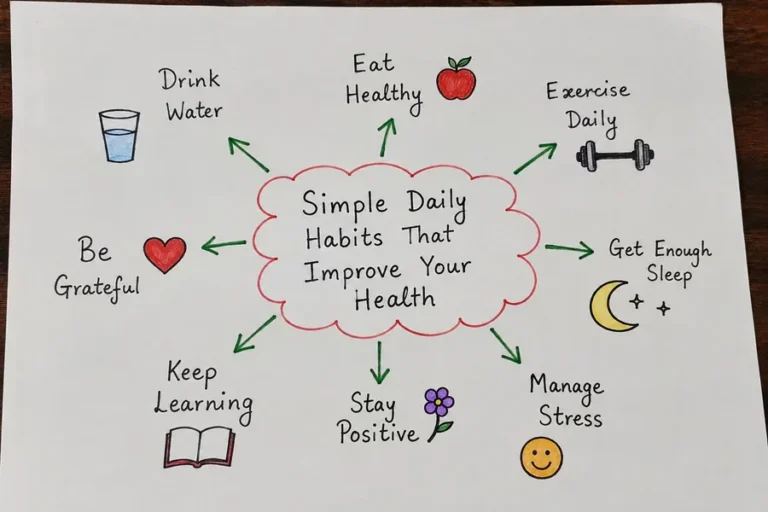 Simple Daily
Habits That
Improve Your
Health
Drink
Water
Eat
Healthy
Exercise
Daily
Get Enough
Sleep
Manage
Stress
Stay
Positive
Keep
Learning
Be
Grateful